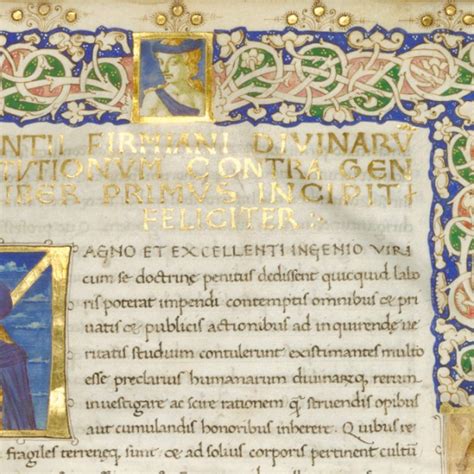 NTII FIRMIANI DIVINARV̄
TVTIONVM CONTRA GEN
IBER PRIMVS INCIPIT
FELICITER
AGNO ET EXCELLENTI INGENIO VIRI
cum se doctrine penitus dedissent quicquid labo
ris poterat impendi contemptis omnibus et pri
uatis et publicis actionibus ad inquirende ue
ritatis studium contulerunt existimantes multo
esse preclarius humanarum diuinarꝝ rerum
inuestigare ac scire rationem ꝗ struendis opibus
aut cumulandis honoribus inherere. Quibus re
fragiles terreneqꝫ sunt et ad solius corporis pertinent cultū